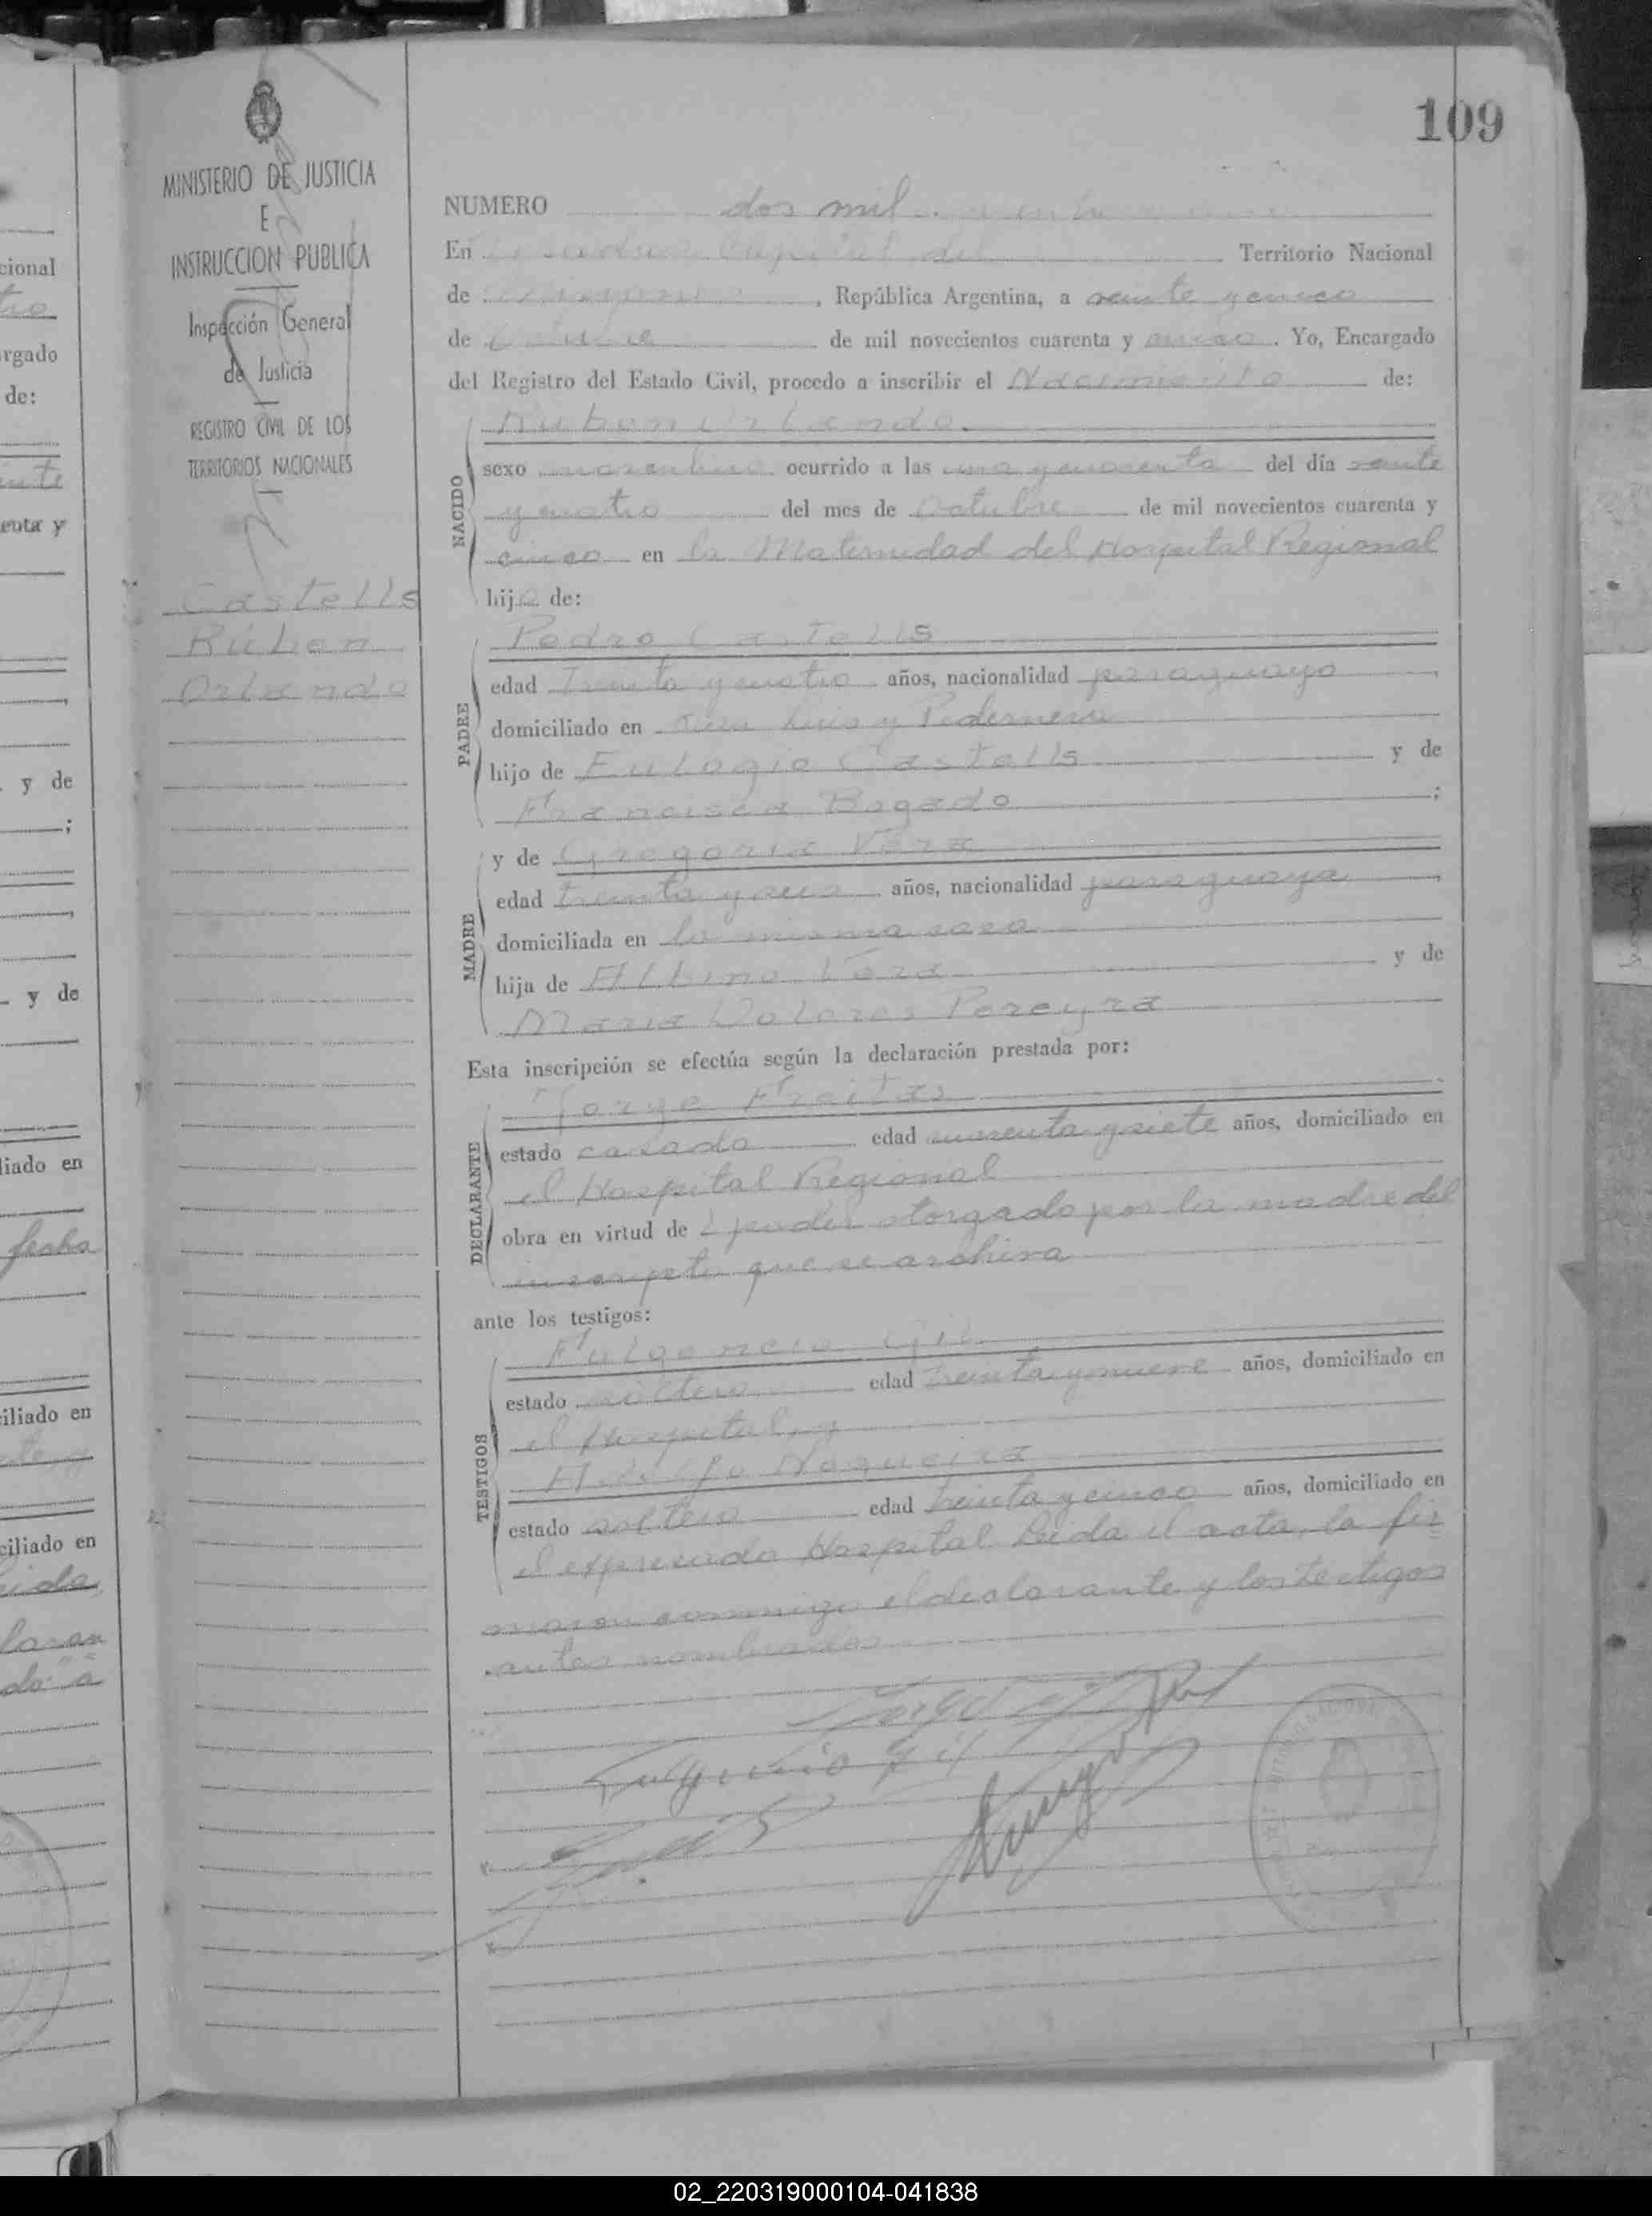 109
MINISTERIO DE JUSTICIA
E
INSTRUCCION PUBLICA
Inspección General
de Justicia
REGISTRO CIVIL DE LOS
TERRITORIOS NACIONALES
Castells
Rúben
Orlando
NUMERO dos mil
En Posadas Capital del Territorio Nacional
de Misiones, República Argentina, a veinte y cinco
de Octubre de mil novecientos cuarenta y cinco. Yo, Encargado
del Registro del Estado Civil, procedo a inscribir el Nacimiento de:
Ruben Orlando.
NACIDO
sexo masculino ocurrido a las una y cuarenta del día veinte
y cuatro del mes de Octubre de mil novecientos cuarenta y
cinco en la Maternidad del Hospital Regional
hijo de:
Pedro Castells
PADRE
edad Treinta y cuatro años, nacionalidad paraguayo,
domiciliado en San Luis y Pedernera
hijo de Eulogio Castells y de
Francisca Bogado;
y de Gregoria Vera
MADRE
edad treinta y seis años, nacionalidad paraguaya,
domiciliada en la misma casa
hija de Albino Vera y de
Maria Dolores Pereyra
Esta inscripción se efectúa según la declaración prestada por:
Jorge Freitas
DECLARANTE
estado casado edad cuarenta y siete años, domiciliado en
el Hospital Regional
obra en virtud de poder otorgado por la madre del
inscripto que se archiva
ante los testigos:
Fulgencio Gil
TESTIGOS
estado soltero edad treinta y nueve años, domiciliado en
el Hospital, y
Adolfo Nogueira
estado soltero edad treinta y cinco años, domiciliado en
el expresado Hospital Leida el acta, la fir
maron conmigo el declarante y los testigos
antes nombrados
Fulgencio Gil
cional
rgado
de:
y de
;
y de
liado en
fecha
iliado en
ciliado en
02_220319000104-041838